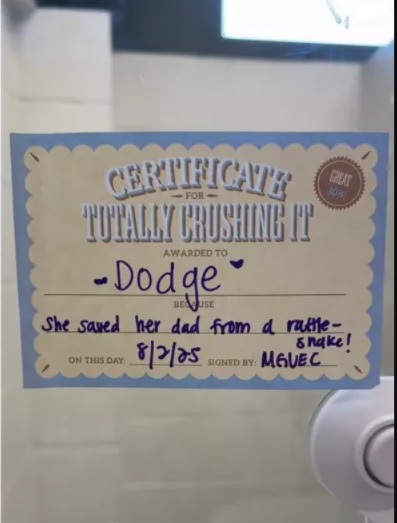 CERTIFICATE
FOR
TOTALLY CRUSHING IT
GREAT
JOB!
AWARDED TO
-Dodge
BECAUSE
She saved her dad from a rattle-
snake!
ON THIS DAY: 8/2/25 SIGNED BY: MGVEC